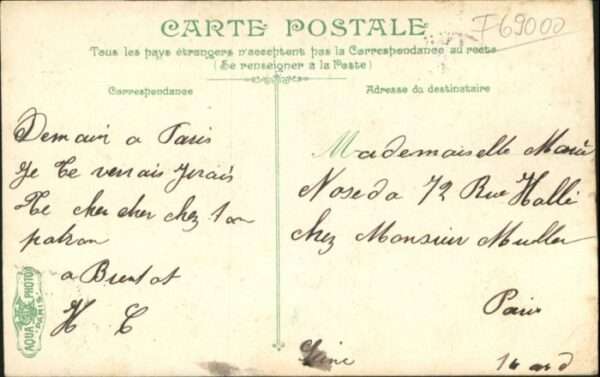 CARTE POSTALE
F69000
Tous les pays étrangers n'acceptent pas la Correspondance au recto
(Se renseigner à la Poste)
Correspondance
Adresse du destinataire
Demain a Paris
Je Te verrais Jirais
Te chercher chez ton
patron
a Bientot
H C
AQUA PHOTO
PARIS
Mademoiselle Marie
Noseda 72 Rue Hallé
chez Monsieur Muller
Paris
Seine
14 ard